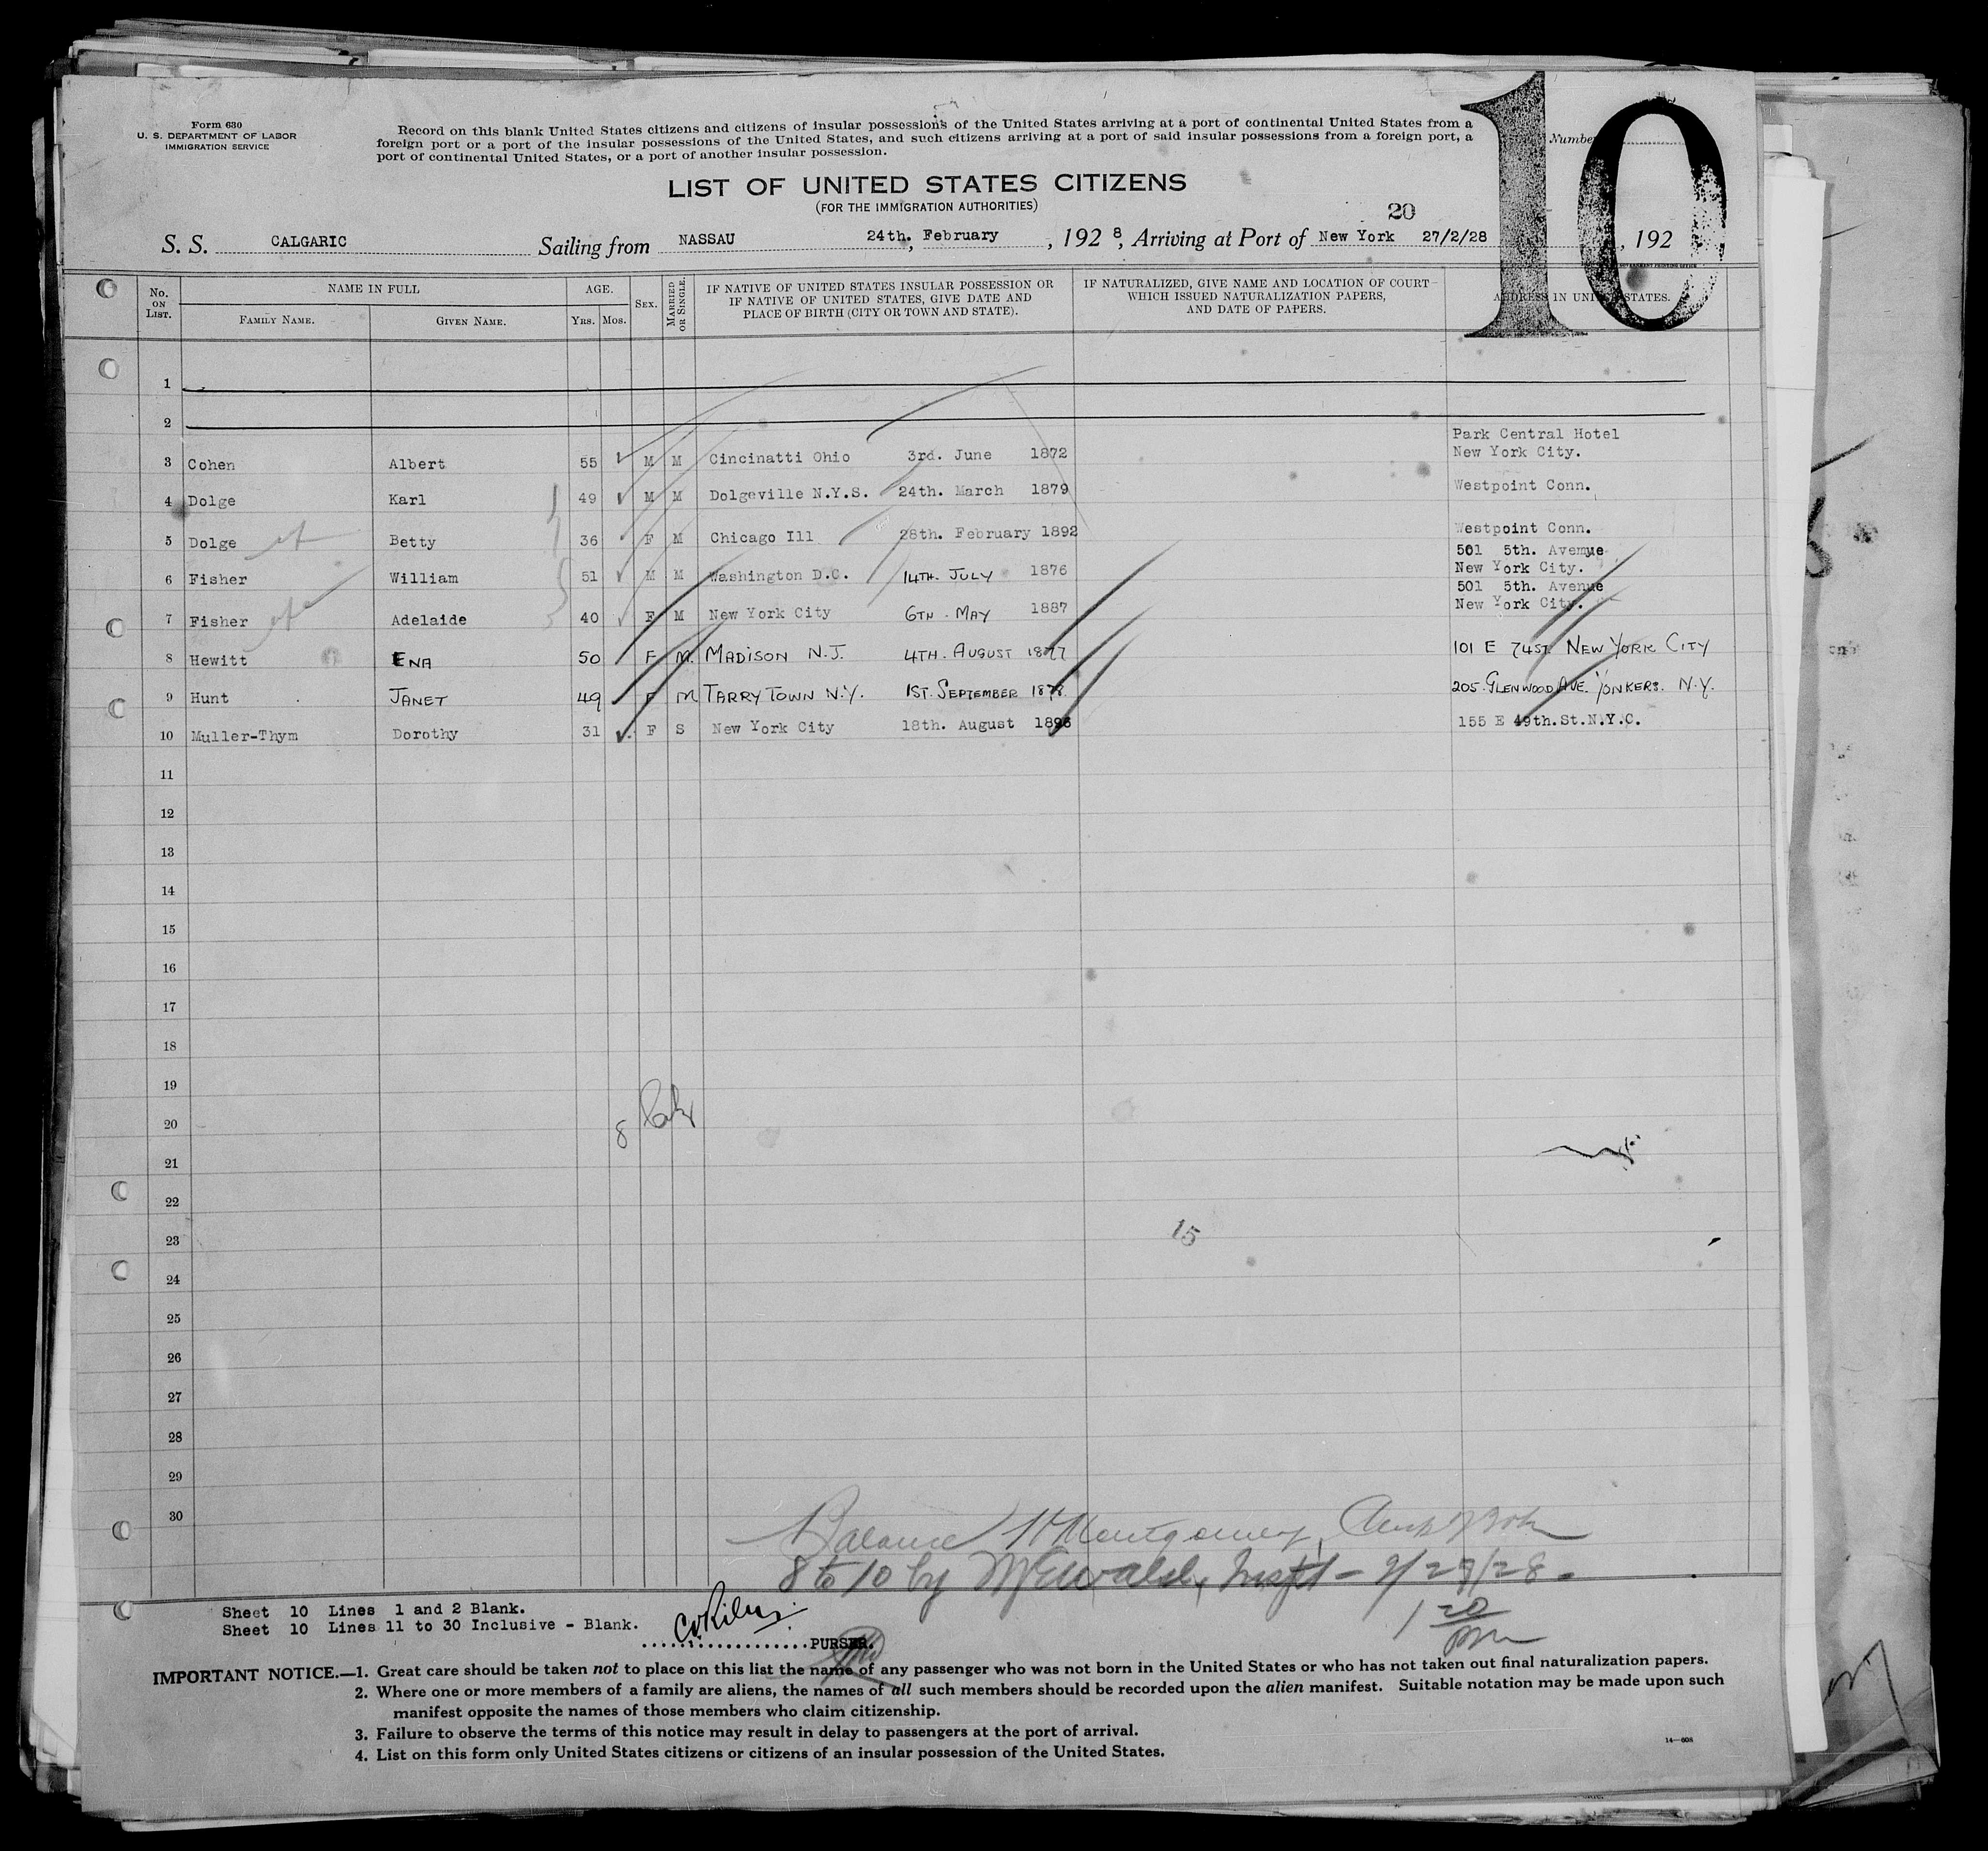 Form 630
U. S. DEPARTMENT OF LABOR
IMMIGRATION SERVICE
Record on this blank United States citizens and citizens of insular possessions of the United States arriving at a port of continental United States from a
foreign port or a port of the insular possessions of the United States, and such citizens arriving at a port of said insular possessions from a foreign port, a
port of continental United States, or a port of another insular possession.
10
Number
LIST OF UNITED STATES CITIZENS
(FOR THE IMMIGRATION AUTHORITIES)
20
S. S. CALGARIC Sailing from NASSAU 24th, February, 1928, Arriving at Port of New York 27/2/28, 192
No. ON LIST. NAME IN FULL FAMILY NAME. GIVEN NAME. AGE. YRS. MOS. SEX. MARRIED OR SINGLE. IF NATIVE OF UNITED STATES INSULAR POSSESSION OR IF NATIVE OF UNITED STATES, GIVE DATE AND PLACE OF BIRTH (CITY OR TOWN AND STATE). IF NATURALIZED, GIVE NAME AND LOCATION OF COURT WHICH ISSUED NATURALIZATION PAPERS, AND DATE OF PAPERS. ADDRESS IN UNITED STATES.
1
2
3 Cohen Albert 55 M M Cincinatti Ohio 3rd. June 1872 Park Central Hotel New York City.
4 Dolge Karl 49 M M Dolgeville N.Y.S. 24th. March 1879 Westpoint Conn.
5 Dolge Betty 36 F M Chicago Ill 28th. February 1892 Westpoint Conn.
6 Fisher William 51 M M Washington D.C. 14TH. JULY 1876 501 5th. Avenue New York City.
7 Fisher Adelaide 40 F M New York City 6TH. MAY 1887 501 5th. Avenue New York City.
8 Hewitt ENA 50 F M. MADISON N.J. 4TH. AUGUST 1877 101 E 74ST. NEW YORK CITY
9 Hunt JANET 49 F M TARRY TOWN N.Y. 1ST. SEPTEMBER 1878 205 GLENWOOD AVE. YONKERS. N.Y.
10 Muller-Thym Dorothy 31 F S New York City 18th. August 1896 155 E 49th.St.N.Y.C.
11
12
13
14
15
16
17
18
19
20
8
21
22
23
15
24
25
26
27
28
29
30
Balance Montgomery
8 to 10 by Inspt - 2/27/28.
1 20
Sheet 10 Lines 1 and 2 Blank.
Sheet 10 Lines 11 to 30 Inclusive - Blank.
PURSER.
IMPORTANT NOTICE.—1. Great care should be taken not to place on this list the name of any passenger who was not born in the United States or who has not taken out final naturalization papers.
2. Where one or more members of a family are aliens, the names of all such members should be recorded upon the alien manifest. Suitable notation may be made upon such
manifest opposite the names of those members who claim citizenship.
3. Failure to observe the terms of this notice may result in delay to passengers at the port of arrival.
4. List on this form only United States citizens or citizens of an insular possession of the United States.
14—608